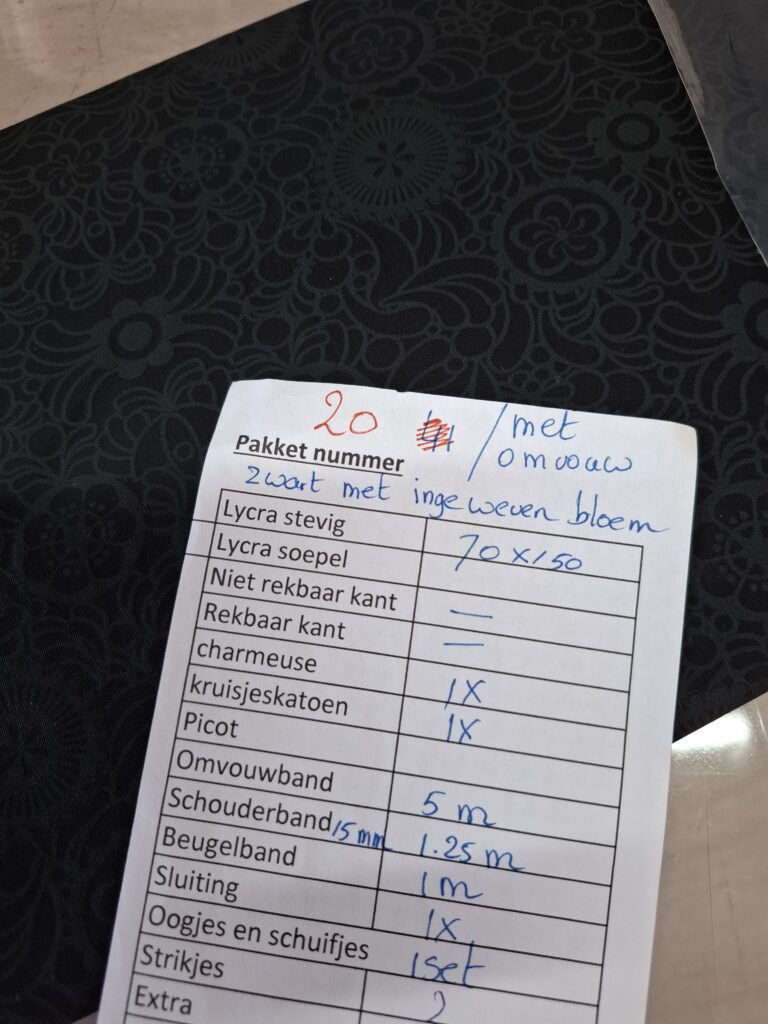 20 / met
omvouw
Pakket nummer
zwart met ingeweven bloem
Lycra stevig 70 x 150
Lycra soepel
Niet rekbaar kant —
Rekbaar kant —
charmeuse 1x
kruisjeskatoen 1x
Picot
Omvouwband 5 m
Schouderband 15 mm 1.25 m
Beugelband 1 m
Sluiting 1x
Oogjes en schuifjes 1 set
Strikjes 2
Extra